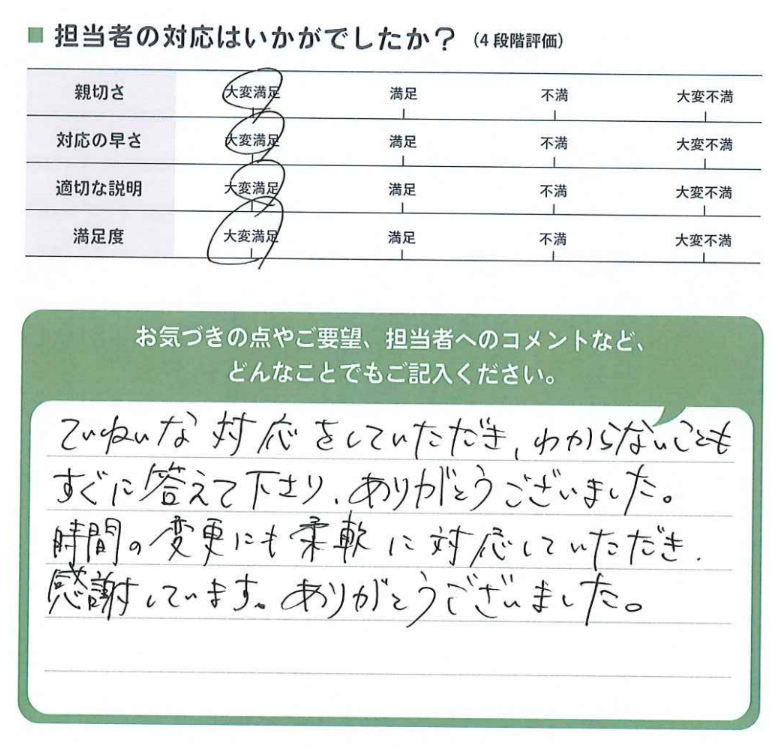 ■ 担当者の対応はいかがでしたか？（4段階評価）
親切さ 大変満足 満足 不満 大変不満
対応の早さ 大変満足 満足 不満 大変不満
適切な説明 大変満足 満足 不満 大変不満
満足度 大変満足 満足 不満 大変不満
お気づきの点やご要望、担当者へのコメントなど、
どんなことでもご記入ください。
ていねいな対応をしていただき、わからないことも
すぐに答えて下さり、ありがとうございました。
時間の変更にも柔軟に対応していただき、
感謝しています。ありがとうございました。